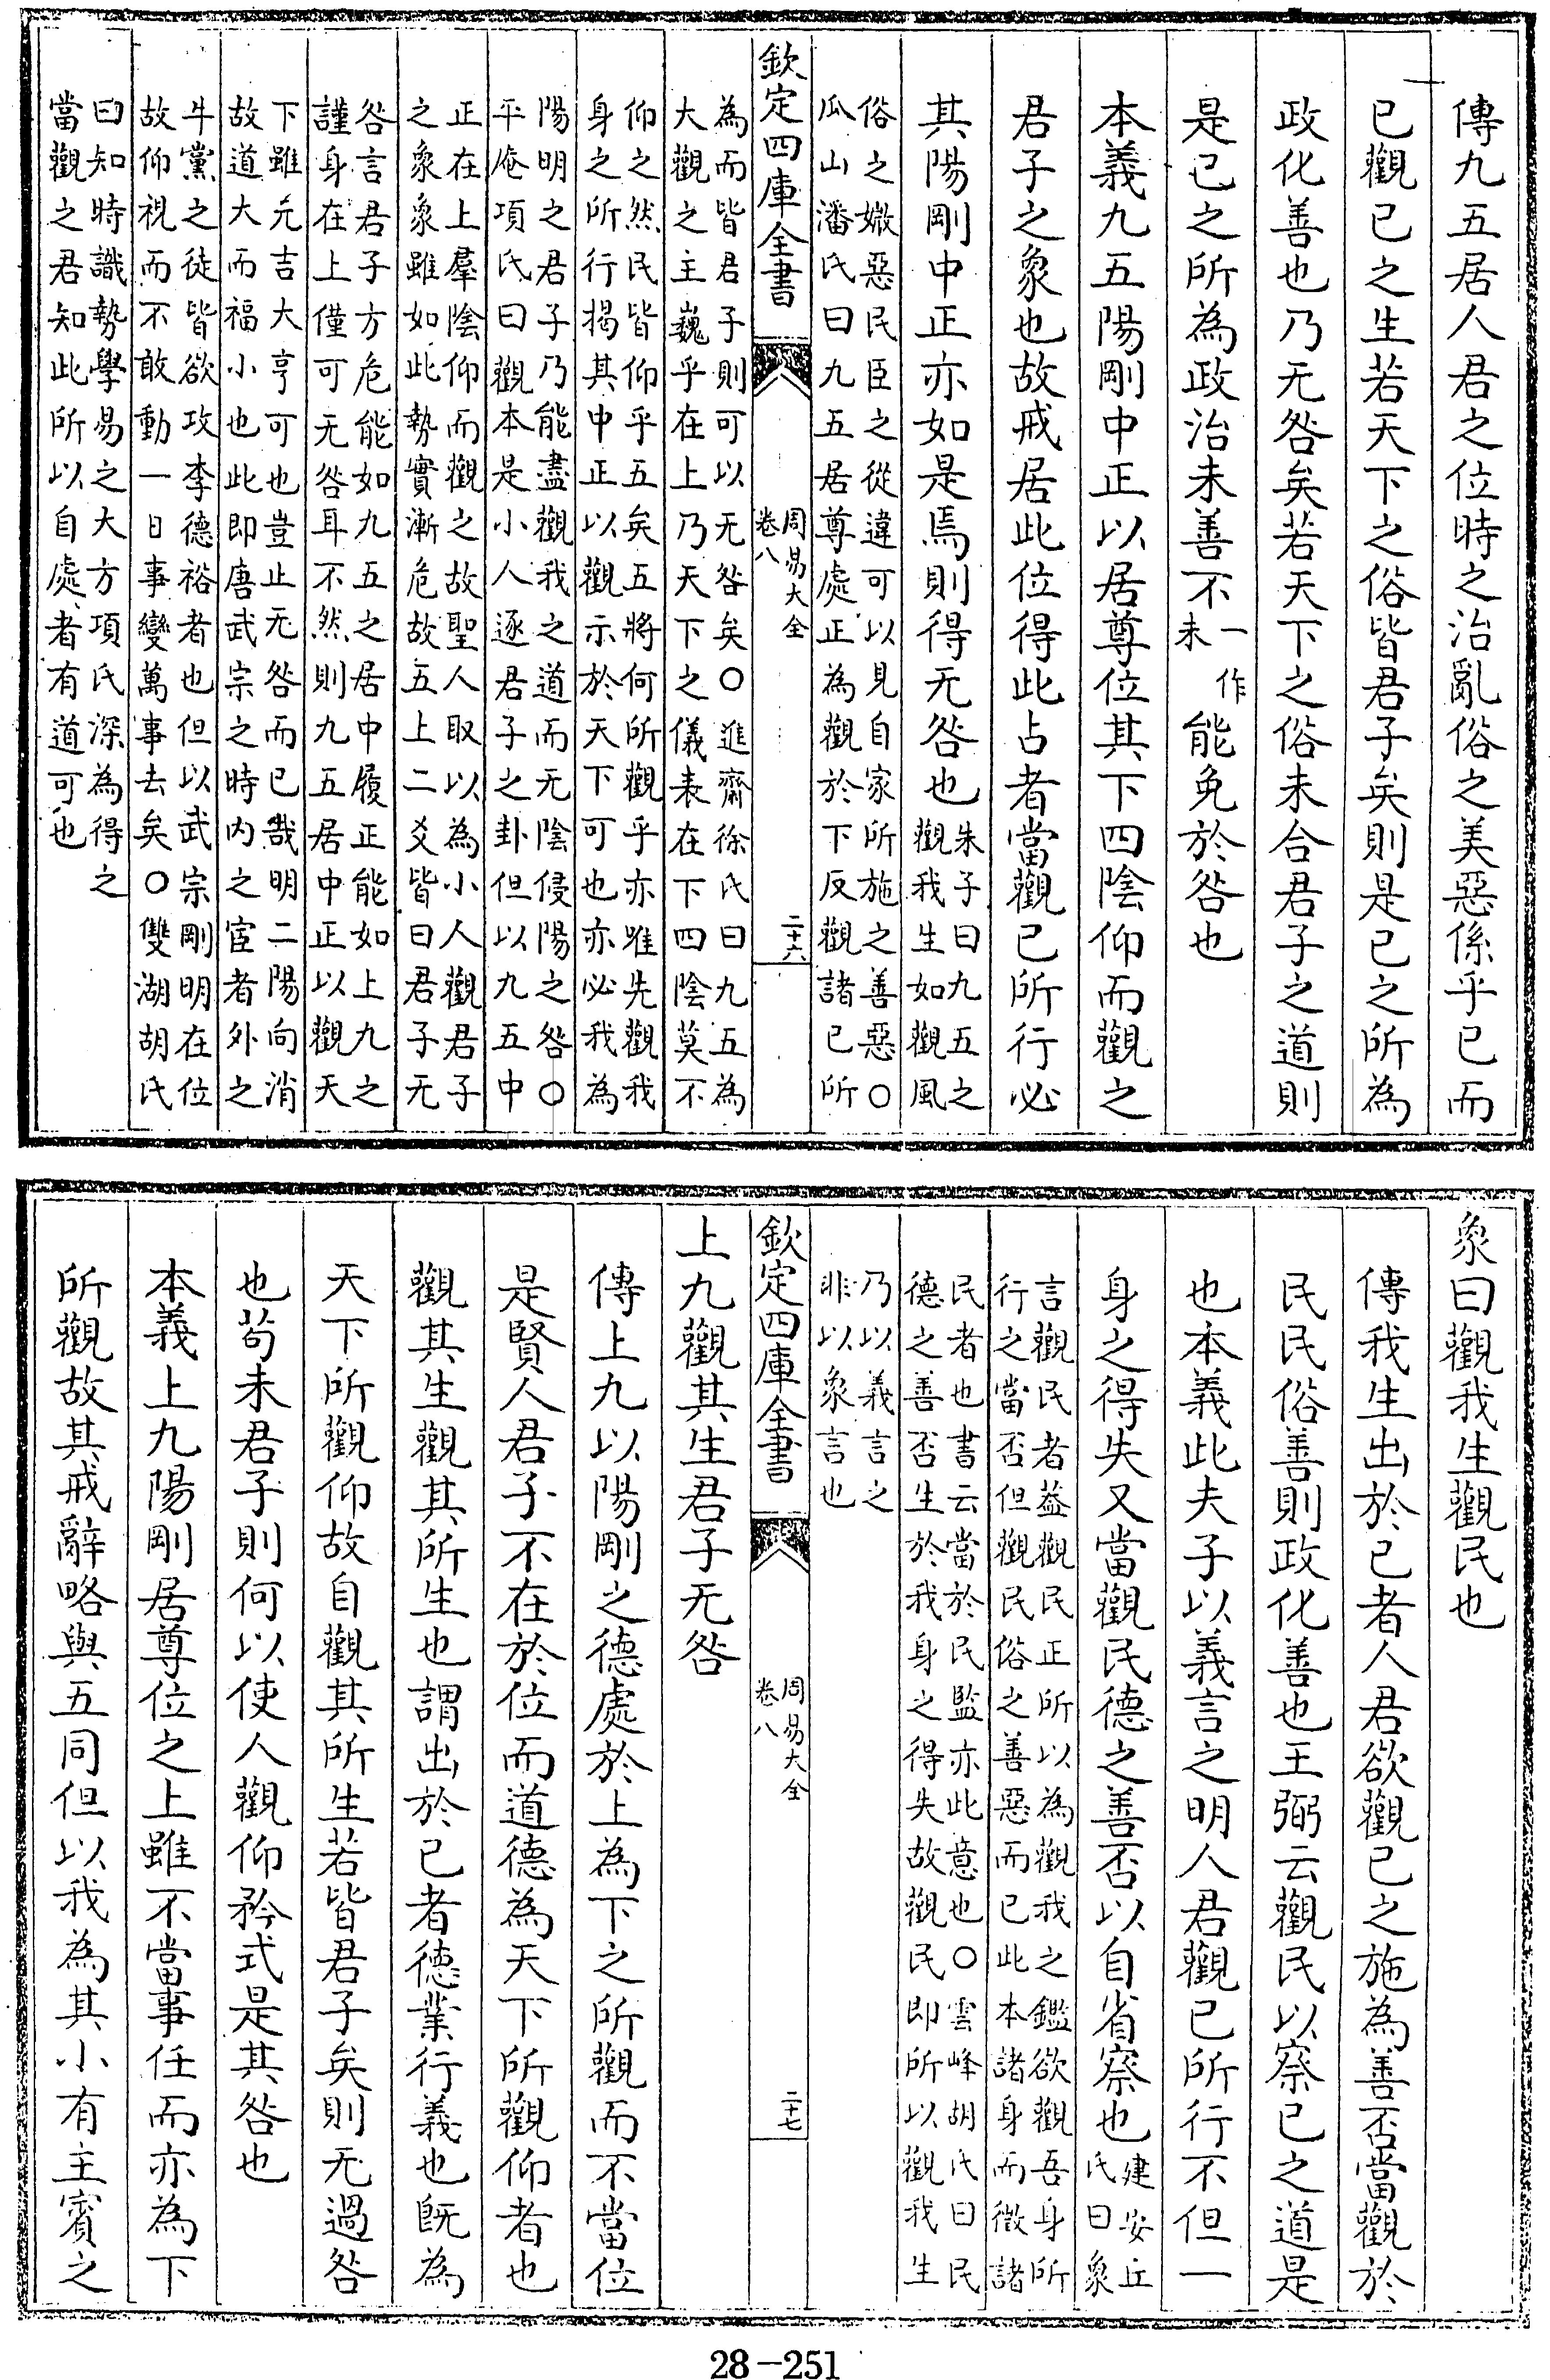 傳九五居人君之位時之治亂俗之美惡係乎已而
已觀已之生若天下之俗皆君子矣則是已之所為
政化善也乃无咎矣若天下之俗未合君子之道則
是已之所為政治未善不一作未能免於咎也
本義九五陽剛中正以居尊位其下四陰仰而觀之
君子之象也故戒居此位得此占者當觀已所行必
其陽剛中正亦如是焉則得无咎也朱子曰九五之
觀我生如觀風
俗之媺惡民臣之從違可以見自家所施之善惡○
瓜山潘氏曰九五居尊處正為觀於下反觀諸已所
欽定四庫全書
周易大全
卷八
二十六
為而皆君子則可以无咎矣○進齋徐氏曰九五為
大觀之主巍乎在上乃天下之儀表在下四陰莫不
仰之然民皆仰乎五矣五將何所觀乎亦唯先觀我
身之所行揭其中正以觀示於天下可也亦必我為
陽明之君子乃能盡觀我之道而无陰侵陽之咎○
平庵項氏曰觀本是小人逐君子之卦但以九五中
正在上羣陰仰而觀之故聖人取以為小人觀君子
之象象雖如此勢實漸危故五上二爻皆曰君子无
咎言君子方危能如九五之居中履正能如上九之
謹身在上僅可无咎耳不然則九五居中正以觀天
下雖元吉大亨可也豈止无咎而已哉明二陽向消
故道大而福小也此即唐武宗之時内之宦者外之
牛黨之徒皆欲攻李德裕者也但以武宗剛明在位
故仰視而不敢動一日事變萬事去矣○雙湖胡氏
曰知時識勢學易之大方項氏深為得之
當觀之君知此所以自處者有道可也
象曰觀我生觀民也
傳我生出於已者人君欲觀已之施為善否當觀於
民民俗善則政化善也王弼云觀民以察已之道是
也本義此夫子以義言之明人君觀已所行不但一
身之得失又當觀民德之善否以自省察也建安丘
氏曰象
言觀民者葢觀民正所以為觀我之鑑欲觀吾身所
行之當否但觀民俗之善惡而已此本諸身而徵諸
民者也書云當於民監亦此意也○雲峰胡氏曰民
德之善否生於我身之得失故觀民即所以觀我生
乃以義言之
非以象言也
欽定四庫全書
周易大全
卷八
二十七
上九觀其生君子无咎
傳上九以陽剛之德處於上為下之所觀而不當位
是賢人君子不在於位而道德為天下所觀仰者也
觀其生觀其所生也謂出於已者德業行義也既為
天下所觀仰故自觀其所生若皆君子矣則无過咎
也苟未君子則何以使人觀仰矜式是其咎也
本義上九陽剛居尊位之上雖不當事任而亦為下
所觀故其戒辭略與五同但以我為其小有主賓之
28-251